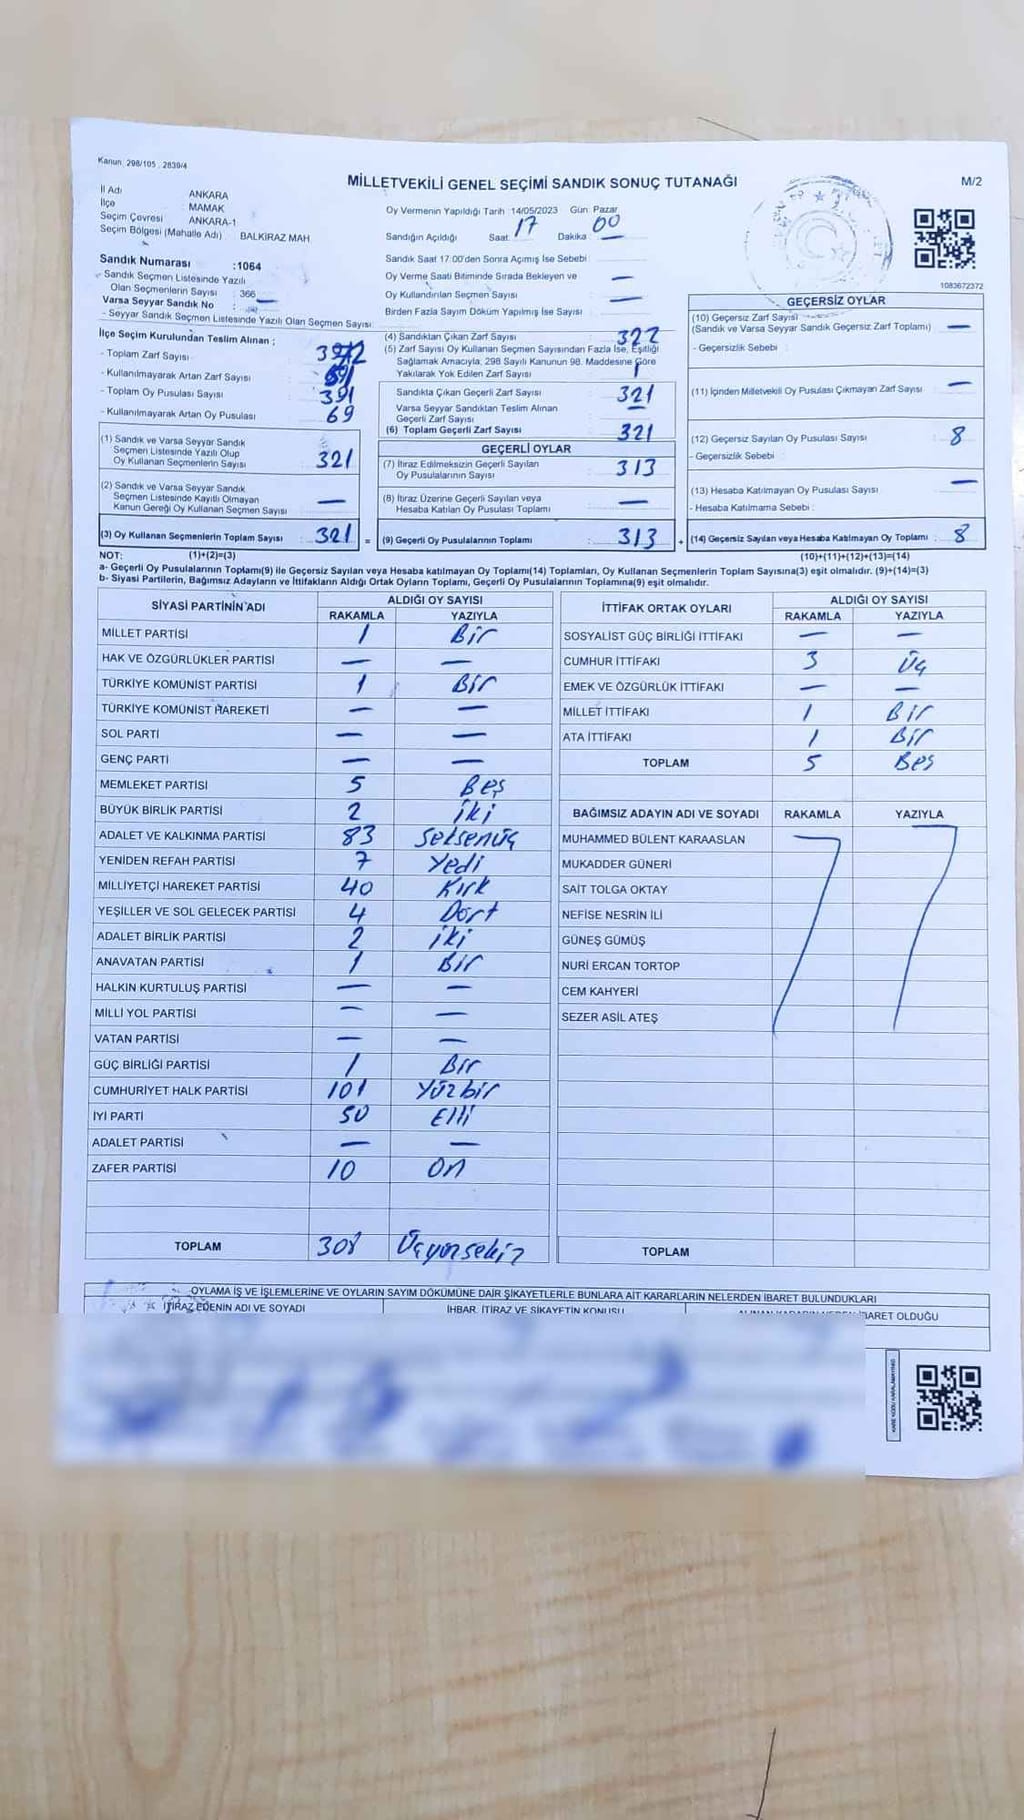 Kanun: 298/105 , 2839/4
MİLLETVEKİLİ GENEL SEÇİMİ SANDIK SONUÇ TUTANAĞI
M/2
İl Adı ANKARA
İlçe MAMAK
Seçim Çevresi ANKARA-1
Seçim Bölgesi (Mahalle Adı) BALKİRAZ MAH
Oy Vermenin Yapıldığı Tarih :14/05/2023 Gün: Pazar
Sandığın Açıldığı Saat: 17 Dakika : 00
1083672372
Sandık Numarası :1064
- Sandık Seçmen Listesinde Yazılı
Olan Seçmenlerin Sayısı : 366
Varsa Seyyar Sandık No : —
- Seyyar Sandık Seçmen Listesinde Yazılı Olan Seçmen Sayısı:
Sandık Saat 17.00'den Sonra Açımış İse Sebebi :
Oy Verme Saati Bitiminde Sırada Bekleyen ve —
Oy Kullandırılan Seçmen Sayısı —
Birden Fazla Sayım Döküm Yapılmış İse Sayısı :
İlçe Seçim Kurulundan Teslim Alınan ;
- Toplam Zarf Sayısı
- Kullanılmayarak Artan Zarf Sayısı
- Toplam Oy Pusulası Sayısı : 391
- Kullanılmayarak Artan Oy Pusulası : 69
(1) Sandık ve Varsa Seyyar Sandık
Seçmen Listesinde Yazılı Olup
Oy Kullanan Seçmenlerin Sayısı : 321
(2) Sandık ve Varsa Seyyar Sandık
Seçmen Listesinde Kayıtlı Olmayan
Kanun Gereği Oy Kullanan Seçmen Sayısı : —
(3) Oy Kullanan Seçmenlerin Toplam Sayısı : 321 =
(4) Sandıktan Çıkan Zarf Sayısı : 322
(5) Zarf Sayısı Oy Kullanan Seçmen Sayısından Fazla İse, Eşitliği
Sağlamak Amacıyla, 298 Sayılı Kanunun 98. Maddesine Göre
Yakılarak Yok Edilen Zarf Sayısı : 1
Sandıkta Çıkan Geçerli Zarf Sayısı : 321
Varsa Seyyar Sandıktan Teslim Alınan
Geçerli Zarf Sayısı : —
(6) Toplam Geçerli Zarf Sayısı : 321
GEÇERLİ OYLAR
(7) İtiraz Edilmeksizin Geçerli Sayılan
Oy Pusulalarının Sayısı : 313
(8) İtiraz Üzerine Geçerli Sayılan veya
Hesaba Katılan Oy Pusulası Toplamı : —
(9) Geçerli Oy Pusulalarının Toplamı : 313 +
GEÇERSİZ OYLAR
(10) Geçersiz Zarf Sayısı
(Sandık ve Varsa Seyyar Sandık Geçersiz Zarf Toplamı) : —
- Geçersizlik Sebebi :
(11) İçinden Milletvekili Oy Pusulası Çıkmayan Zarf Sayısı : —
(12) Geçersiz Sayılan Oy Pusulası Sayısı : 8
- Geçersizlik Sebebi :
(13) Hesaba Katılmayan Oy Pusulası Sayısı : —
- Hesaba Katılmama Sebebi :
(14) Geçersiz Sayılan veya Hesaba Katılmayan Oy Toplamı : 8
NOT: (1)+(2)=(3)
(10)+(11)+(12)+(13)=(14)
a- Geçerli Oy Pusulalarının Toplamı(9) ile Geçersiz Sayılan veya Hesaba katılmayan Oy Toplamı(14) Toplamları, Oy Kullanan Seçmenlerin Toplam Sayısına(3) eşit olmalıdır. (9)+(14)=(3)
b- Siyasi Partilerin, Bağımsız Adayların ve İttifakların Aldığı Ortak Oyların Toplamı, Geçerli Oy Pusulalarının Toplamına(9) eşit olmalıdır.
SİYASİ PARTİNİN ADI ALDIĞI OY SAYISI
RAKAMLA YAZIYLA
MİLLET PARTİSİ 1 Bir
HAK VE ÖZGÜRLÜKLER PARTİSİ — —
TÜRKİYE KOMÜNİST PARTİSİ 1 Bir
TÜRKİYE KOMÜNİST HAREKETİ — —
SOL PARTİ — —
GENÇ PARTİ — —
MEMLEKET PARTİSİ 5 Beş
BÜYÜK BİRLİK PARTİSİ 2 iki
ADALET VE KALKINMA PARTİSİ 83 Seksenüç
YENİDEN REFAH PARTİSİ 7 Yedi
MİLLİYETÇİ HAREKET PARTİSİ 40 Kırk
YEŞİLLER VE SOL GELECEK PARTİSİ 4 Dört
ADALET BİRLİK PARTİSİ 2 iki
ANAVATAN PARTİSİ 1 Bir
HALKIN KURTULUŞ PARTİSİ — —
MİLLİ YOL PARTİSİ — —
VATAN PARTİSİ — —
GÜÇ BİRLİĞİ PARTİSİ 1 Bir
CUMHURİYET HALK PARTİSİ 101 Yüzbir
İYİ PARTİ 50 Elli
ADALET PARTİSİ — —
ZAFER PARTİSİ 10 On
TOPLAM 308 Üçyüzsekiz
İTTİFAK ORTAK OYLARI ALDIĞI OY SAYISI
RAKAMLA YAZIYLA
SOSYALİST GÜÇ BİRLİĞİ İTTİFAKI — —
CUMHUR İTTİFAKI 3 Üç
EMEK VE ÖZGÜRLÜK İTTİFAKI — —
MİLLET İTTİFAKI 1 Bir
ATA İTTİFAKI 1 Bir
TOPLAM 5 Beş
BAĞIMSIZ ADAYIN ADI VE SOYADI RAKAMLA YAZIYLA
MUHAMMED BÜLENT KARAASLAN
MUKADDER GÜNERİ
SAİT TOLGA OKTAY
NEFİSE NESRİN İLİ
GÜNEŞ GÜMÜŞ
NURİ ERCAN TORTOP
CEM KAHYERİ
SEZER ASİL ATEŞ
TOPLAM
OYLAMA İŞ VE İŞLEMLERİNE VE OYLARIN SAYIM DÖKÜMÜNE DAİR ŞİKAYETLERLE BUNLARA AİT KARARLARIN NELERDEN İBARET BULUNDUKLARI
İTİRAZ EDENİN ADI VE SOYADI İHBAR, İTİRAZ VE ŞİKAYETİN KONUSU ALINAN KARARIN NEDEN İBARET OLDUĞU